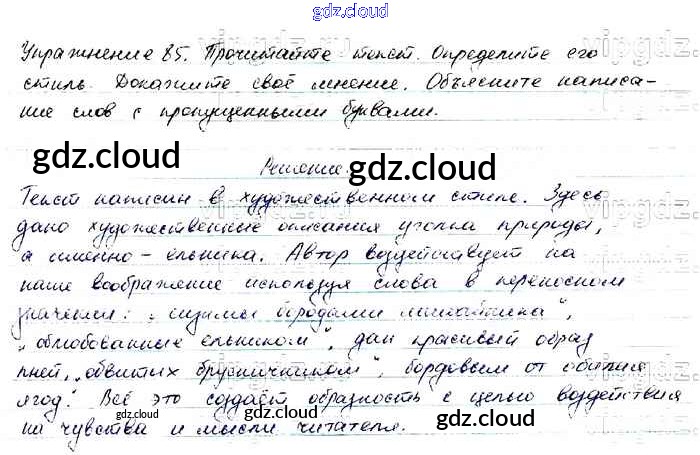 gdz.cloud
Упражнение 85. Прочитайте текст. Определите его
стиль. Докажите своё мнение. Объясните написа-
ние слов с пропущенными буквами.
gdz.cloud gdz.cloud
Решение.
Текст написан в художественном стиле. Здесь
дано художественные описания уголка природы,
а именно - ельника. Автор воздействует на
наше воображение используя слова в переносном
значении: „сизыми бродами лишайника",
„облюбованные ельником", дан красивый образ
пней, „обвитых брусничником", бордовым от обилия
ягод." Всё это создаёт образность с целью воздействия
на чувства и мысли читателя.
gdz.cloud gdz.cloud gdz.cloud
vipgdz.